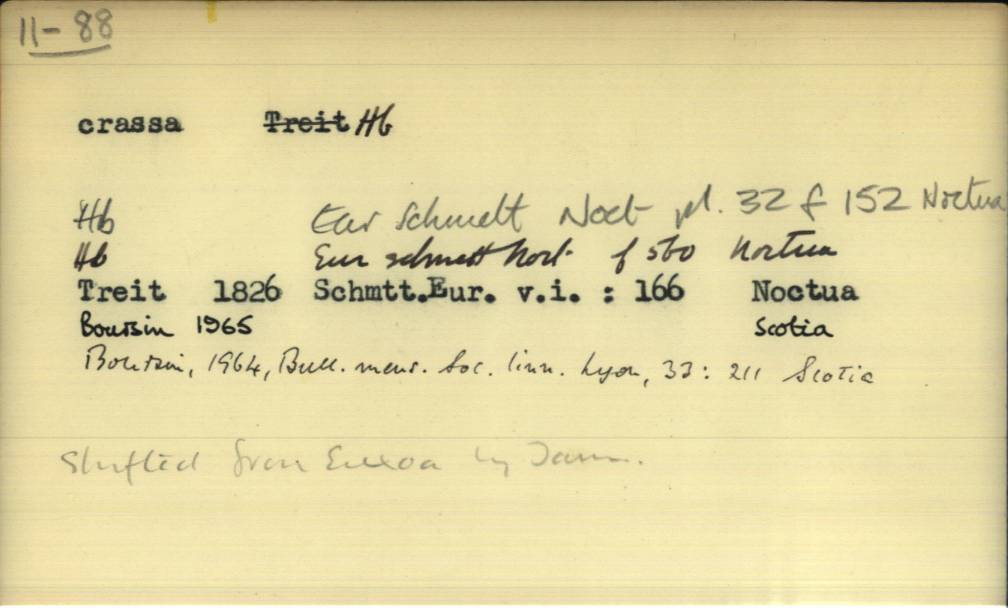 11-88
crassa Treit Hb
Hb Eur Schmett Noct pl. 32 f 152 Noctua
Hb Eur schmett Noct f 560 Noctua
Treit 1826 Schmtt.Eur. v.i. : 166 Noctua
Boursin 1965 Scotia
Boursin, 1964, Bull. mens. Soc. linn. Lyon, 33: 211 Scotia
Shifted from Euxoa by Tams.